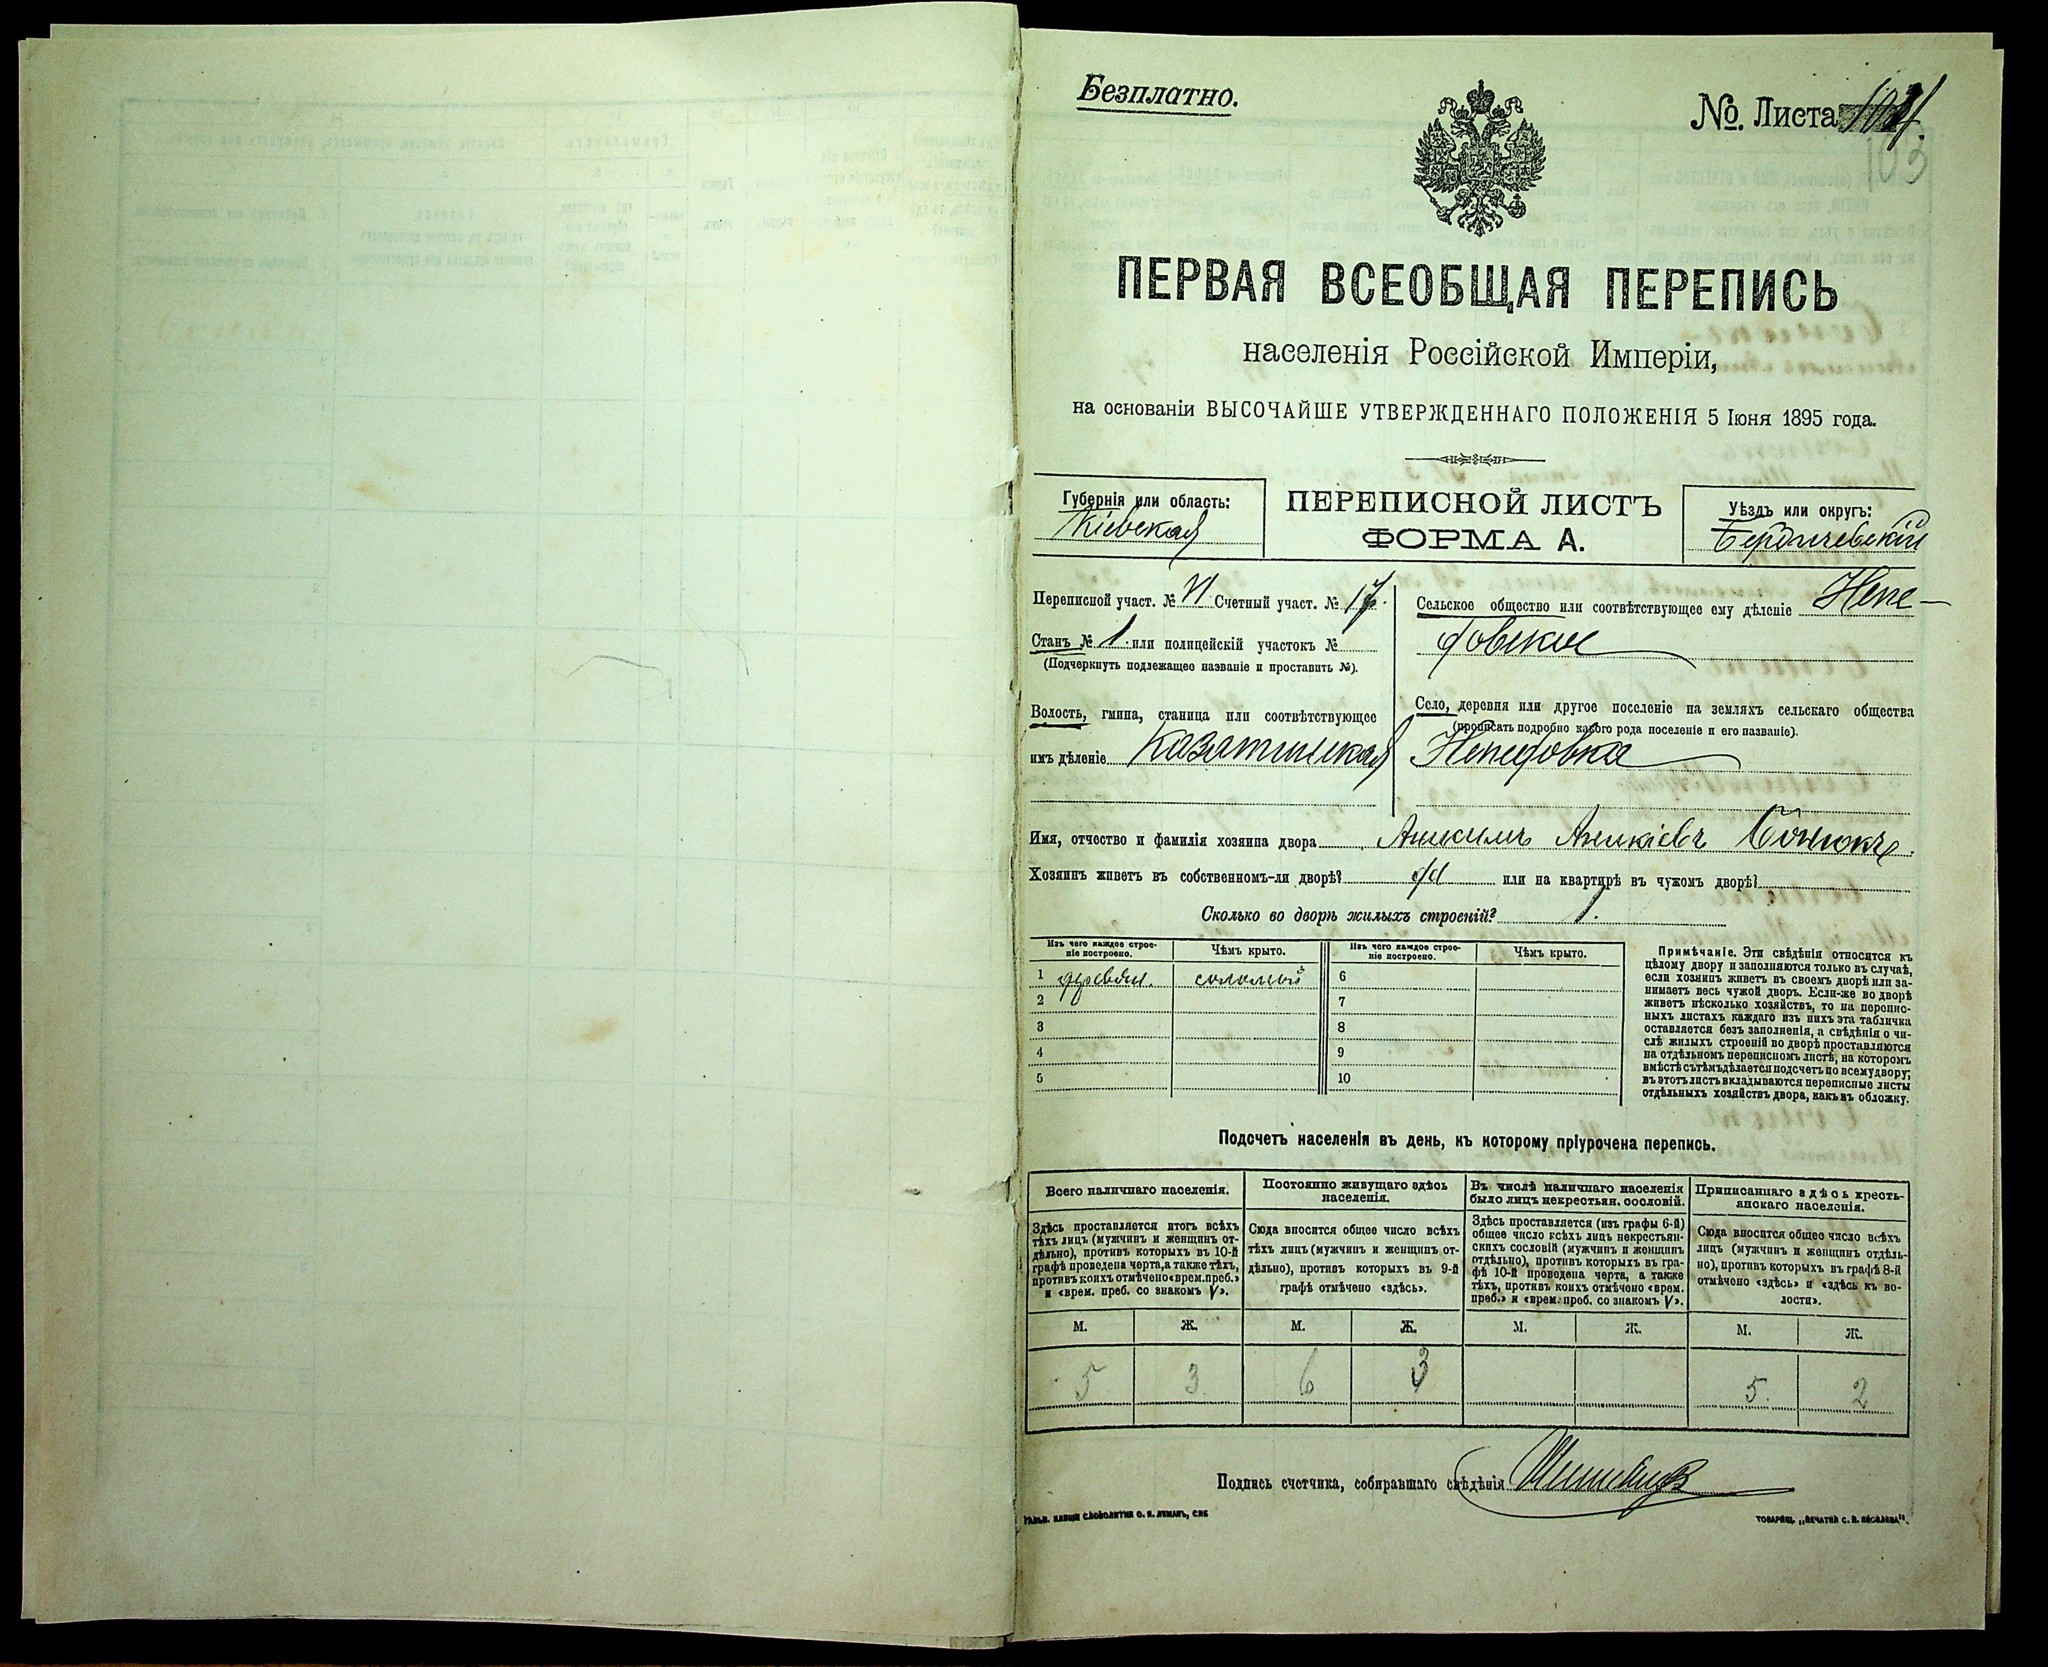 Безплатно.
№. Листа
103
ПЕРВАЯ ВСЕОБЩАЯ ПЕРЕПИСЬ
населенія Россійской Имперіи,
на основаніи ВЫСОЧАЙШЕ УТВЕРЖДЕННАГО ПОЛОЖЕНІЯ 5 Іюня 1895 года.
Губернія или область:
Кіевская
ПЕРЕПИСНОЙ ЛИСТЪ
ФОРМА А.
Уѣздъ или округъ:
Бердичевскій
Переписной участ. № VI Счетный участ. № 17.
Станъ № 1 или полицейскій участокъ №
(Подчеркнуть подлежащее названіе и проставить №).
Волость, гмина, станица или соотвѣтствующее
имъ дѣленіе Казатинская
Сельское общество или соотвѣтствующее ему дѣленіе Непе-
довское
Село, деревня или другое поселеніе на земляхъ сельскаго общества
(прописать подробно какого рода поселеніе и его названіе).
Непедовка
Имя, отчество и фамилія хозяина двора
Хозяинъ живетъ въ собственномъ-ли дворѣ? да или на квартирѣ въ чужомъ дворѣ?
Сколько во дворѣ жилыхъ строеній? 1.
Изъ чего каждое строе-
ніе построено.
Чѣмъ крыто.
Изъ чего каждое строе-
ніе построено.
Чѣмъ крыто.
1 деревян. соломой 6
2 7
3 8
4 9
5 10
Примѣчаніе. Эти свѣдѣнія относятся къ
цѣлому двору и заполняются только въ случаѣ,
если хозяинъ живетъ въ своемъ дворѣ или за-
нимаетъ весь чужой дворъ. Если-же во дворѣ
живетъ нѣсколько хозяйствъ, то на перепис-
ныхъ листахъ каждаго изъ нихъ эта табличка
оставляется безъ заполненія, а свѣдѣнія о чи-
слѣ жилыхъ строеній во дворѣ проставляются
на отдѣльномъ переписномъ листѣ, на которомъ
вмѣстѣ съ тѣмъ дѣлается подсчетъ по всему двору;
въ этотъ листъ вкладываются переписные листы
отдѣльныхъ хозяйствъ двора, какъ въ обложку.
Подсчетъ населенія въ день, къ которому пріурочена перепись.
Всего наличнаго населенія.
Здѣсь проставляется итогъ всѣхъ
тѣхъ лицъ (мужчинъ и женщинъ от-
дѣльно), противъ которыхъ въ 10-й
графѣ проведена черта, а также тѣхъ,
противъ коихъ отмѣчено «врем. преб.»
и «врем. преб. со знакомъ V».
Постоянно живущаго здѣсь
населенія.
Сюда вносится общее число всѣхъ
тѣхъ лицъ (мужчинъ и женщинъ от-
дѣльно), противъ которыхъ въ 9-й
графѣ отмѣчено «здѣсь».
Въ числѣ наличнаго населенія
было лицъ некрестьян. сословій.
Здѣсь проставляется (изъ графы 6-й)
общее число всѣхъ лицъ некрестьян-
скихъ сословій (мужчинъ и женщинъ
отдѣльно), противъ которыхъ въ гра-
фѣ 10-й проведена черта, а также
тѣхъ, противъ коихъ отмѣчено «врем.
преб.» и «врем. преб. со знакомъ V».
Приписаннаго здѣсь кресть-
янскаго населенія.
Сюда вносится общее число всѣхъ
лицъ (мужчинъ и женщинъ отдѣль-
но), противъ которыхъ въ графѣ 8-й
отмѣчено «здѣсь» и «здѣсь къ во-
лости».
М. Ж. М. Ж. М. Ж. М. Ж.
5 3 6 3 5. 2
Подпись счетчика, собиравшаго свѣдѣнія
ТОВАРИЩ. „ПЕЧАТНЯ С. П. ЯКОВЛЕВА“.